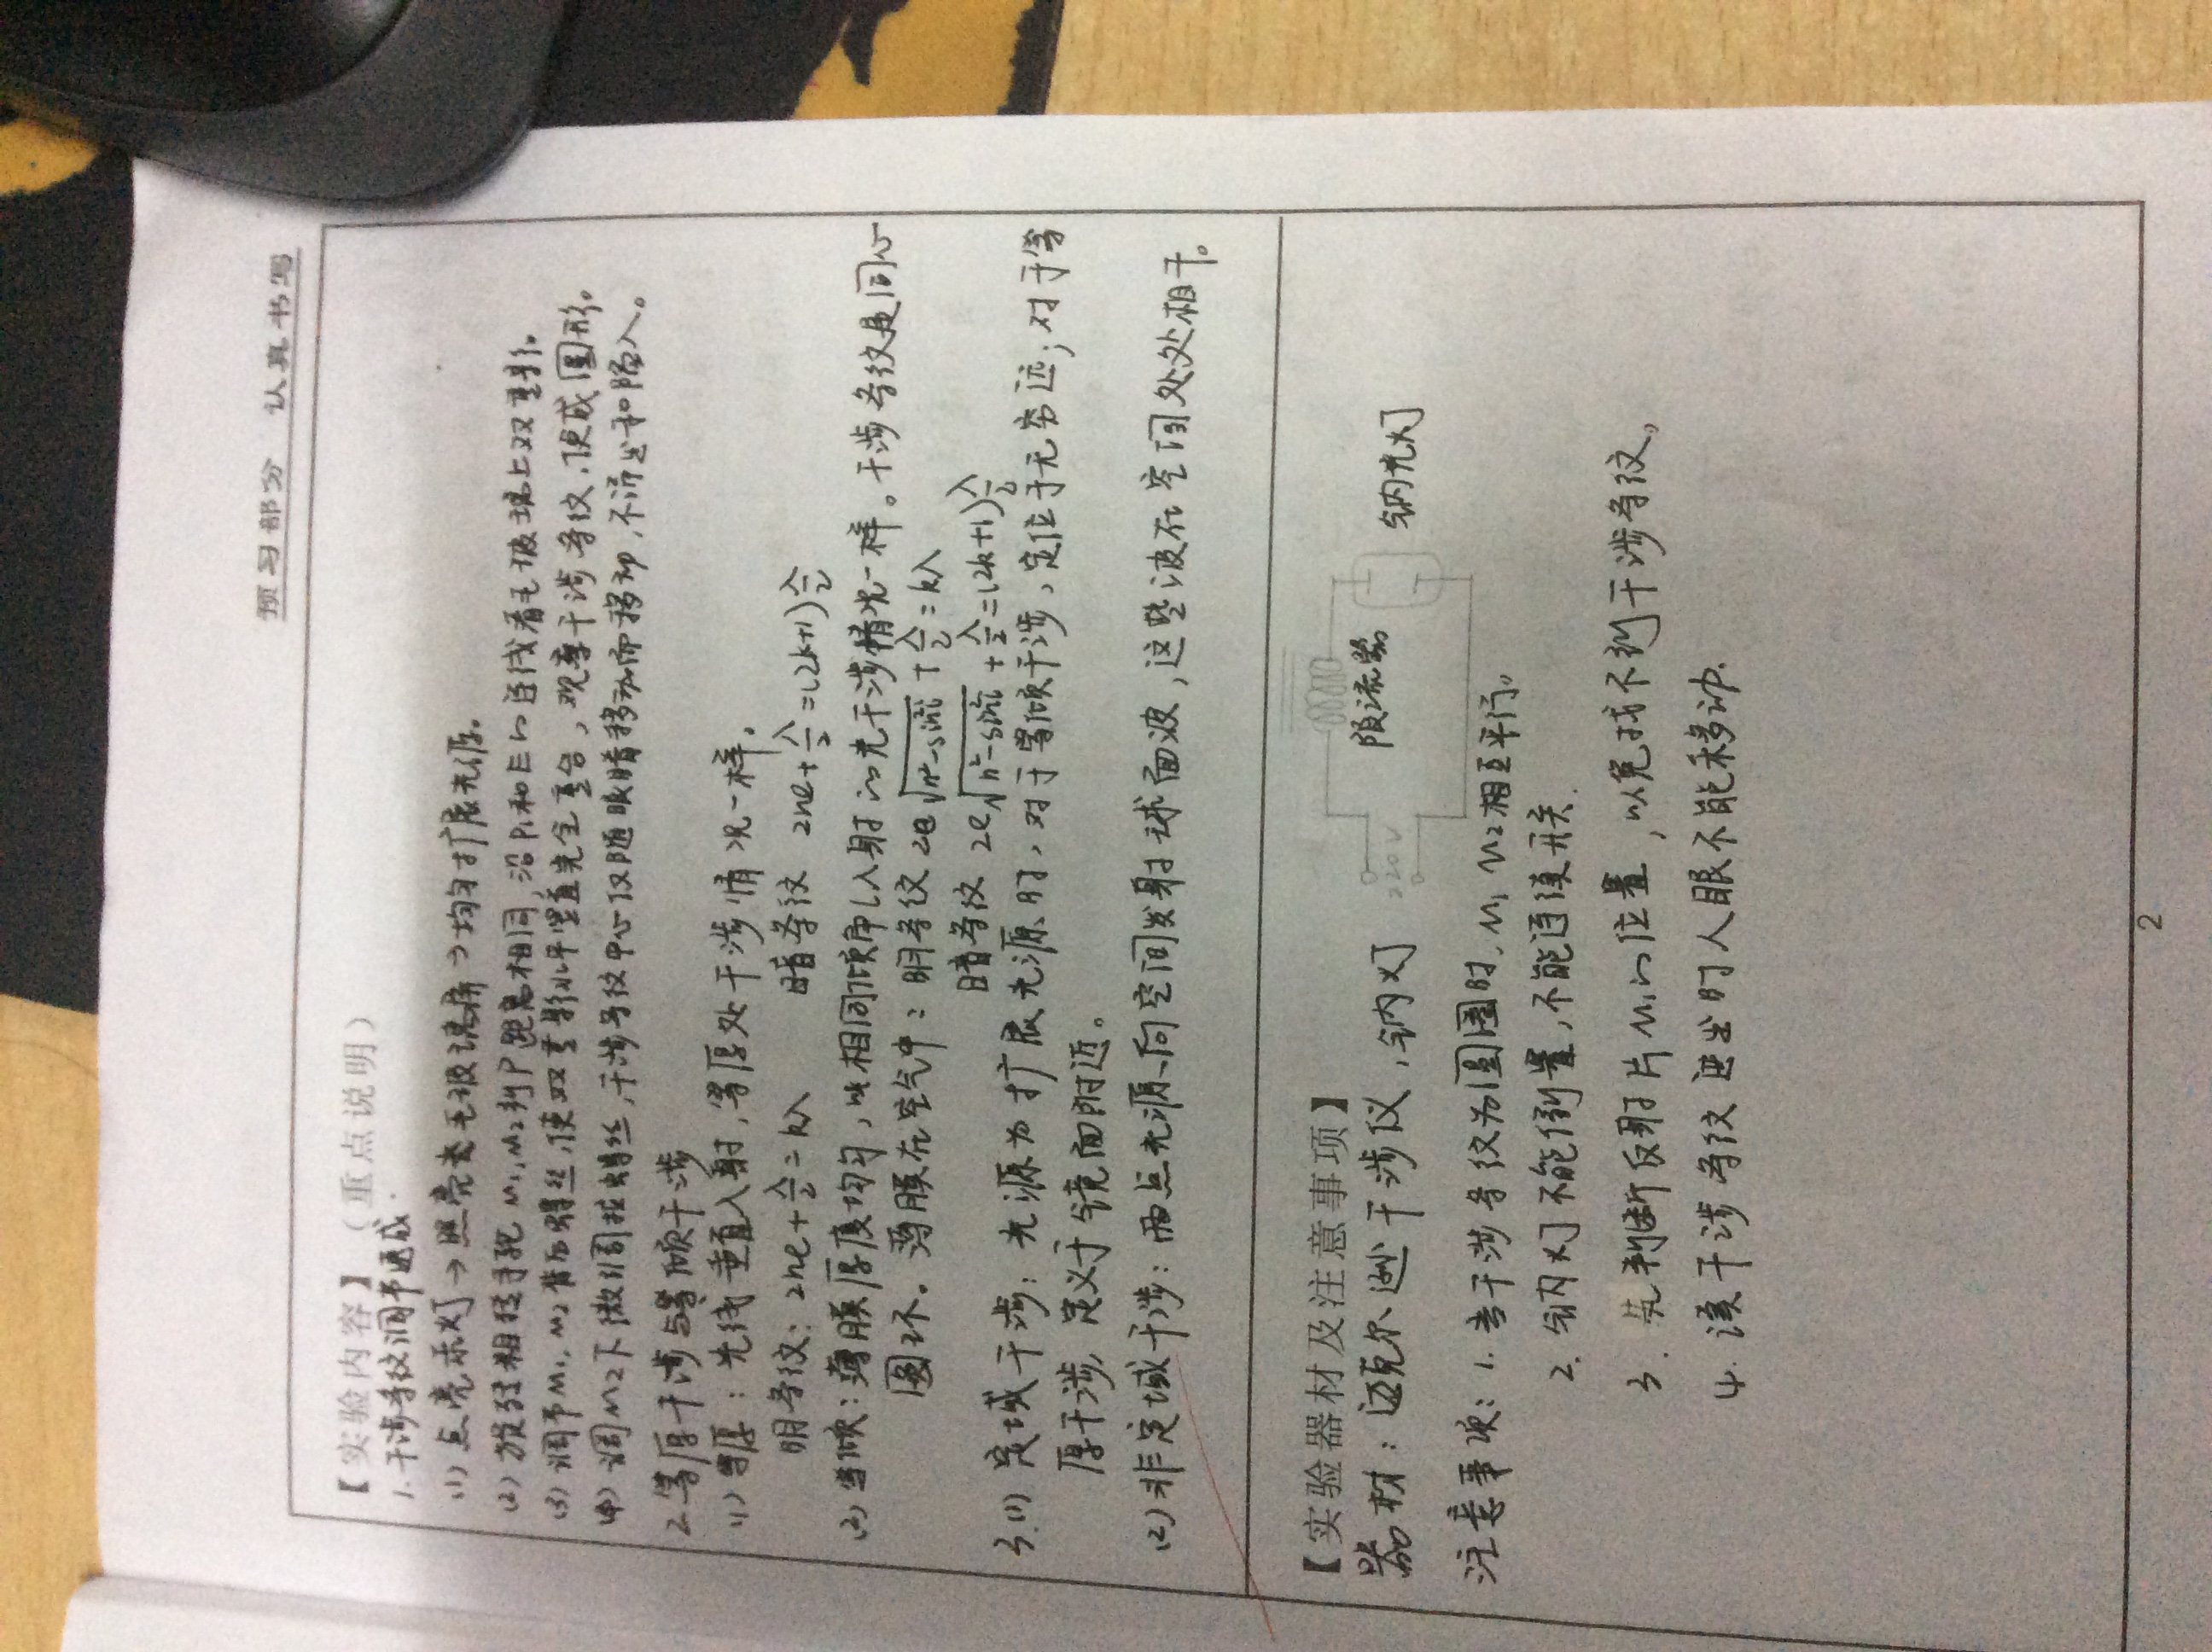 预习部分 认真书写
【实验内容】（重点说明）
1. 干涉条纹调节速成.
(1) 点亮汞灯→照亮毛玻璃屏→均匀扩展光源。
(2) 旋转粗调手轮 M₁, M₂到P距离相同, 沿P₁和E的连线看毛玻璃上双重影。
(3) 调节M₁, M₂背后螺丝, 使双重影水平竖直完全重合, 观察干涉条纹, 使成圆形。
(4) 调M₂下微调拉螺丝, 干涉条纹中心仅随眼睛移动而移动, 不涌出和陷入。
2. 等厚干涉与等倾干涉
(1) 等厚: 光线垂直入射, 等厚处干涉情况一样。
明条纹: 2ne+λ/2=kλ 暗条纹 2ne+λ/2=(2k+1)λ/2
(2) 等倾: 薄膜厚度均匀, 以相同倾角i入射的光干涉情况一样。干涉条纹是同心
圆环。薄膜在空气中: 明条纹 2e√(n²-sin²i)+λ/2=kλ
暗条纹 2e√(n²-sin²i)+λ/2=(2k+1)λ/2
3.(1) 定域干涉: 光源为扩展光源时, 对于等倾干涉, 定位于无穷远; 对于等
厚干涉, 定义于镜面附近。
(2) 非定域干涉: 两点光源向空间发射球面波, 这些波在空间处处相干。
【实验器材及注意事项】
器材: 迈克尔逊干涉仪, 钠灯
220V
限流器
钠光灯
注意事项: 1. 当干涉条纹为圆圈时, M₁ M₂相互平行。
2. 钠灯不能倒置, 不能连续开关.
3. 先判断反射片M₁的位置, 以免找不到干涉条纹。
4. 读干涉条纹进出时人眼不能移动.
2